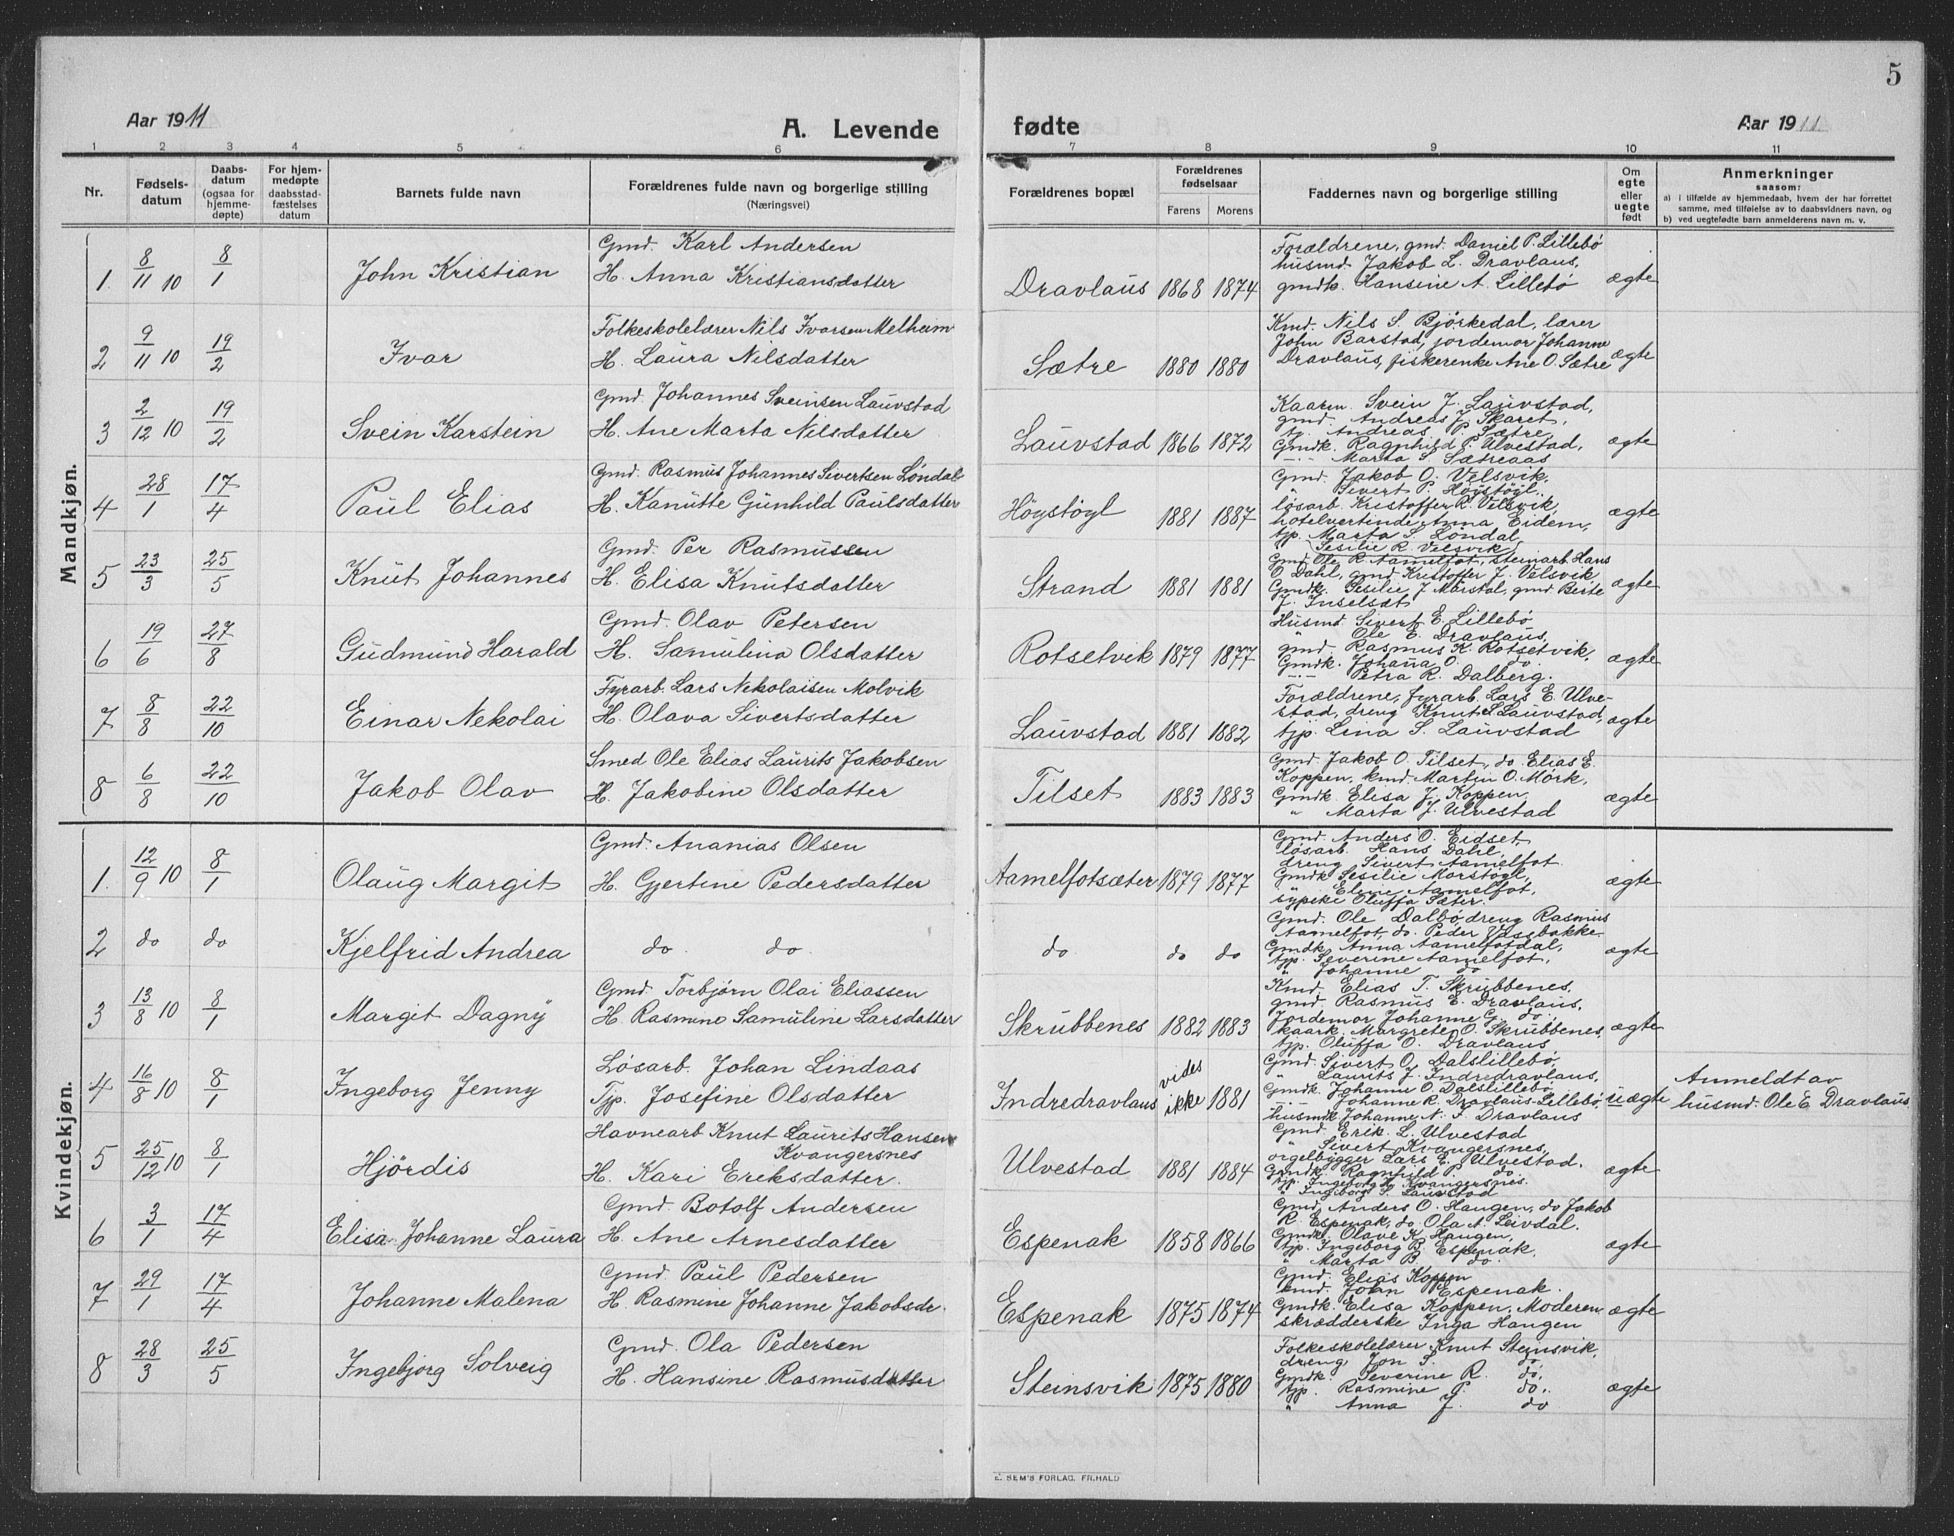 5
Aar 1911
A. Levende fødte
Aar 1911
1 2 3 4 5 6 7 8 9 10 11
Nr.
Fødsels-
datum
Daabs-
datum
(ogsaa for
hjemme-
døpte)
For hjem-
medøpte
daabsstad-
fæstelses
datum
Barnets fulde navn
Forældrenes fulde navn og borgerlige stilling
(Næringsvei)
Forældrenes bopæl
Forældrenes
fødselsaar
Farens Morens
Faddernes navn og borgerlige stilling
Om
egte
eller
uegte
født
Anmerkninger
saasom:
a) i tilfælde av hjemmedaab, hvem der har forrettet
samme, med tilføielse av to daabsvidners navn, og
b) ved uegtefødte barn anmelderens navn m. v.
Mandkjøn.
1. 8/11 10 8/1 John Kristian
Gmd. Karl Andersen
H. Anna Kristiansdatter
Dravlaus 1868 1874
Forældrene, gmd. Daniel P. Lillebø
husmd. Jakob L. Dravlaus,
gmdk. Hansine A. Lillebø
ægte
2 9/11 10 19/2 Ivar
Folkeskolelærer Nils Ivarsen Melheim
H. Laura Nilsdatter
Sætre 1880 1880
Kmd. Nils S. Bjørkedal, lærer
John Barstad, jordemor Johanne
Dravlaus, fiskerenke Ane O. Sætre
ægte
3 2/12 10 19/2 Svein Karstein
Gmd. Johannes Sveinsen Lauvstad
H. Ane Marta Nilsdatter
Lauvstad 1866 1872
Kaarm. Svein J. Lauvstad,
gmd. Andreas J. Skaret,
tj. Andreas P. Sætre,
Gmdk. Ragnhild P. Ulvestad,
Marta S. Sætreaas
ægte
4 28/1 17/4 Paul Elias
Gmd. Rasmus Johannes Sivertsen Løndal
H. Kanutte Gunhild Paulsdatter
Høgstøgl 1881 1887
Gmd. Jakob O. Velsvik,
" Sivert P. Høgstøgl,
løsarb. Kristoffer R. Velsvik,
hotelvertinde Anna Eidem,
tjp. Marta S. Løndal,
" Sesilie R. Velsvik
ægte
5 23/3 25/5 Knut Johannes
Gmd. Per Rasmussen
H. Elisa Knutsdatter
Strand 1881 1881
Gmd Ole R. Aamelfot, steinarb. Hans
O. Dahl, gmd Kristoffer J. Velsvik,
Gmdk. Sesilie J. Mørstøl, gmd. Berte
J. Inselset
ægte
6 19/6 27/8 Gudmund Harald
Gmd. Olav Petersen
H. Samulina Olsdatter
Rotsetvik 1879 1877
Husmd Sivert E. Lillebø
" Ole E. Dravlaus,
gmd Rasmus K. Rotsetvik,
Gmdk. Johana O. do.
Petra R. Dalberg.
ægte
7 8/8 22/10 Einar Nekolai
Fyrarb. Lars Nekolaisen Molvik
H. Olava Sivertsdatter
Lauvstad 1881 1882
Forældrene, fyrarb. Lars E. Ulve-
stad, dreng Knut S Lauvstad,
tjp. Lina S. Lauvstad
ægte
8 6/8 22/10 Jakob Olav
Smed Ole Elias Laurits Jakobsen
H. Jakobine Olsdatter
Tilset 1883 1883
Gmd. Jakob O. Tilset, do. Elias E.
Koppen, kmd. Martin O. Mørk,
Gmdk. Elisa J. Koppen
" Marta J. Ulvestad
ægte
Kvindekjøn.
1. 12/9 10 8/1 Olaug Margit
Gmd. Ananias Olsen
H. Gjertine Pedersdatter
Aamelfotsæter 1879 1877
Gmd. Anders O. Eidset,
løsarb. Hans Dahl,
dreng Sivert Aamelfot.
Gmdk Sesilie Morstøgl,
" Eline Aamelfot,
sypike Oluffa Sæter.
ægte
2 do do Kjelfrid Andrea
do do.
do do do
Gmd. Ole Dalbø, dreng Rasmus
Aamelfot, do. Peder Vassbakke
Gmdk. Anna Aamelfotdal,
tjp. Severine Aamelfot,
" Johanne do
ægte
3 13/8 10 8/1 Margit Dagny
Gmd. Torbjørn Olai Eliassen
H. Rasmine Samuline Larsdatter
Skrubbenes 1882 1883
Kmd. Elias T. Skrubbenes,
gmd. Rasmus E. Dravlaus,
Jordemor Johanne G. do.
kaark. Margrete O. Skrubbenes,
tjp. Oluffa O. Dravlaus
ægte
4 16/8 10 8/1 Ingeborg Jenny
Løsarb. Johan Lindaas
Tjp. Josefine Olsdatter
Indredravlaus vides ikke 1881
Gmd. Sivert O. Dalslillebø,
" Laurits J. Indredravlaus,
Gmdk. Johanne O. Dalslillebø
Johanne R. Dravlaus-Lillebø,
husmdk. Johanne N. I. Dravlaus
uægte
Anmeldt av
husmd. Ole E. Dravlaus
5 25/12 10 8/1 Hjørdis
Havnearb Knut Laurits Hansen
Kvangersnes
H. Kari Eriksdatter.
Ulvestad 1881 1884
Gmd. Erik L. Ulvestad
" Sivert Kvangersnes,
orgelbygger Lars E. Ulvestad.
Gmdk. Ragnhild P. do.
tjp. Ingeborg H. Kvangersnes.
" Ingeborg S. Lauvstad
ægte
6 3/1 17/4 Elisa Johanne Laura
Gmd. Botolf Andersen
H. Ane Arnesdatter
Espenak 1858 1866
Gmd. Anders O. Haugen, do Jakob
R. Espenak, do. Ola A. Leivdal.
Gmdk. Olave K. Haugen,
tjp. Ingeborg B. Espenak,
" Marta B. do.
ægte
7 29/1 17/4 Johanne Malena
Gmd. Paul Pedersen
H. Rasmine Johanne Jakobsdr.
Espenak 1875 1874
Gmd. Elias Koppen
kmd. John Espenak.
Gmdk. Elisa Koppen, Moderen
skrædderske Inga Haugen
ægte
8 28/3 25/5 Ingebjorg Solveig
Gmd. Ola Pedersen
H. Hansine Rasmusdatter
Steinsvik 1875 1880
Folkeskolelærer Knut Steinsvik,
dreng Jon S. do,
Gmdk. Severine R. do,
tjp. Rasmine P. do.
" Anna J. do
ægte
E. SEM'S FORLAG, FR.HALD